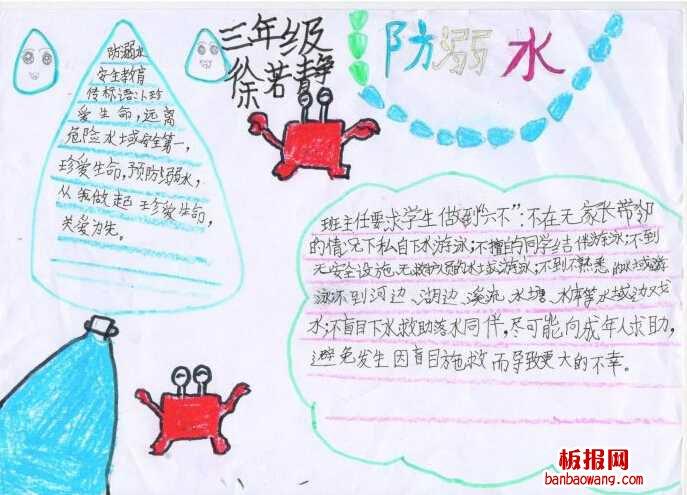 三年级
徐若静
防溺水
防溺水
安全教育
传标语:1、珍
爱生命,远离
危险水域安全第一,
珍爱生命,预防溺水,
从我做起 珍爱生命,
关爱为先。
班主任要求学生做到"六不":不在无家长带领
的情况下私自下水游泳;不擅自同学结伴游泳;不到
无安全设施、无救护员的水域游泳;不到不熟悉的水域游
泳不到河边、湖边、溪流、水塘、水库等水域边戏
水;不盲目下水救助落水同伴,尽可能向成年人求助,
避免发生因盲目施救而导致更大的不幸。
板报网
banbaowang.com